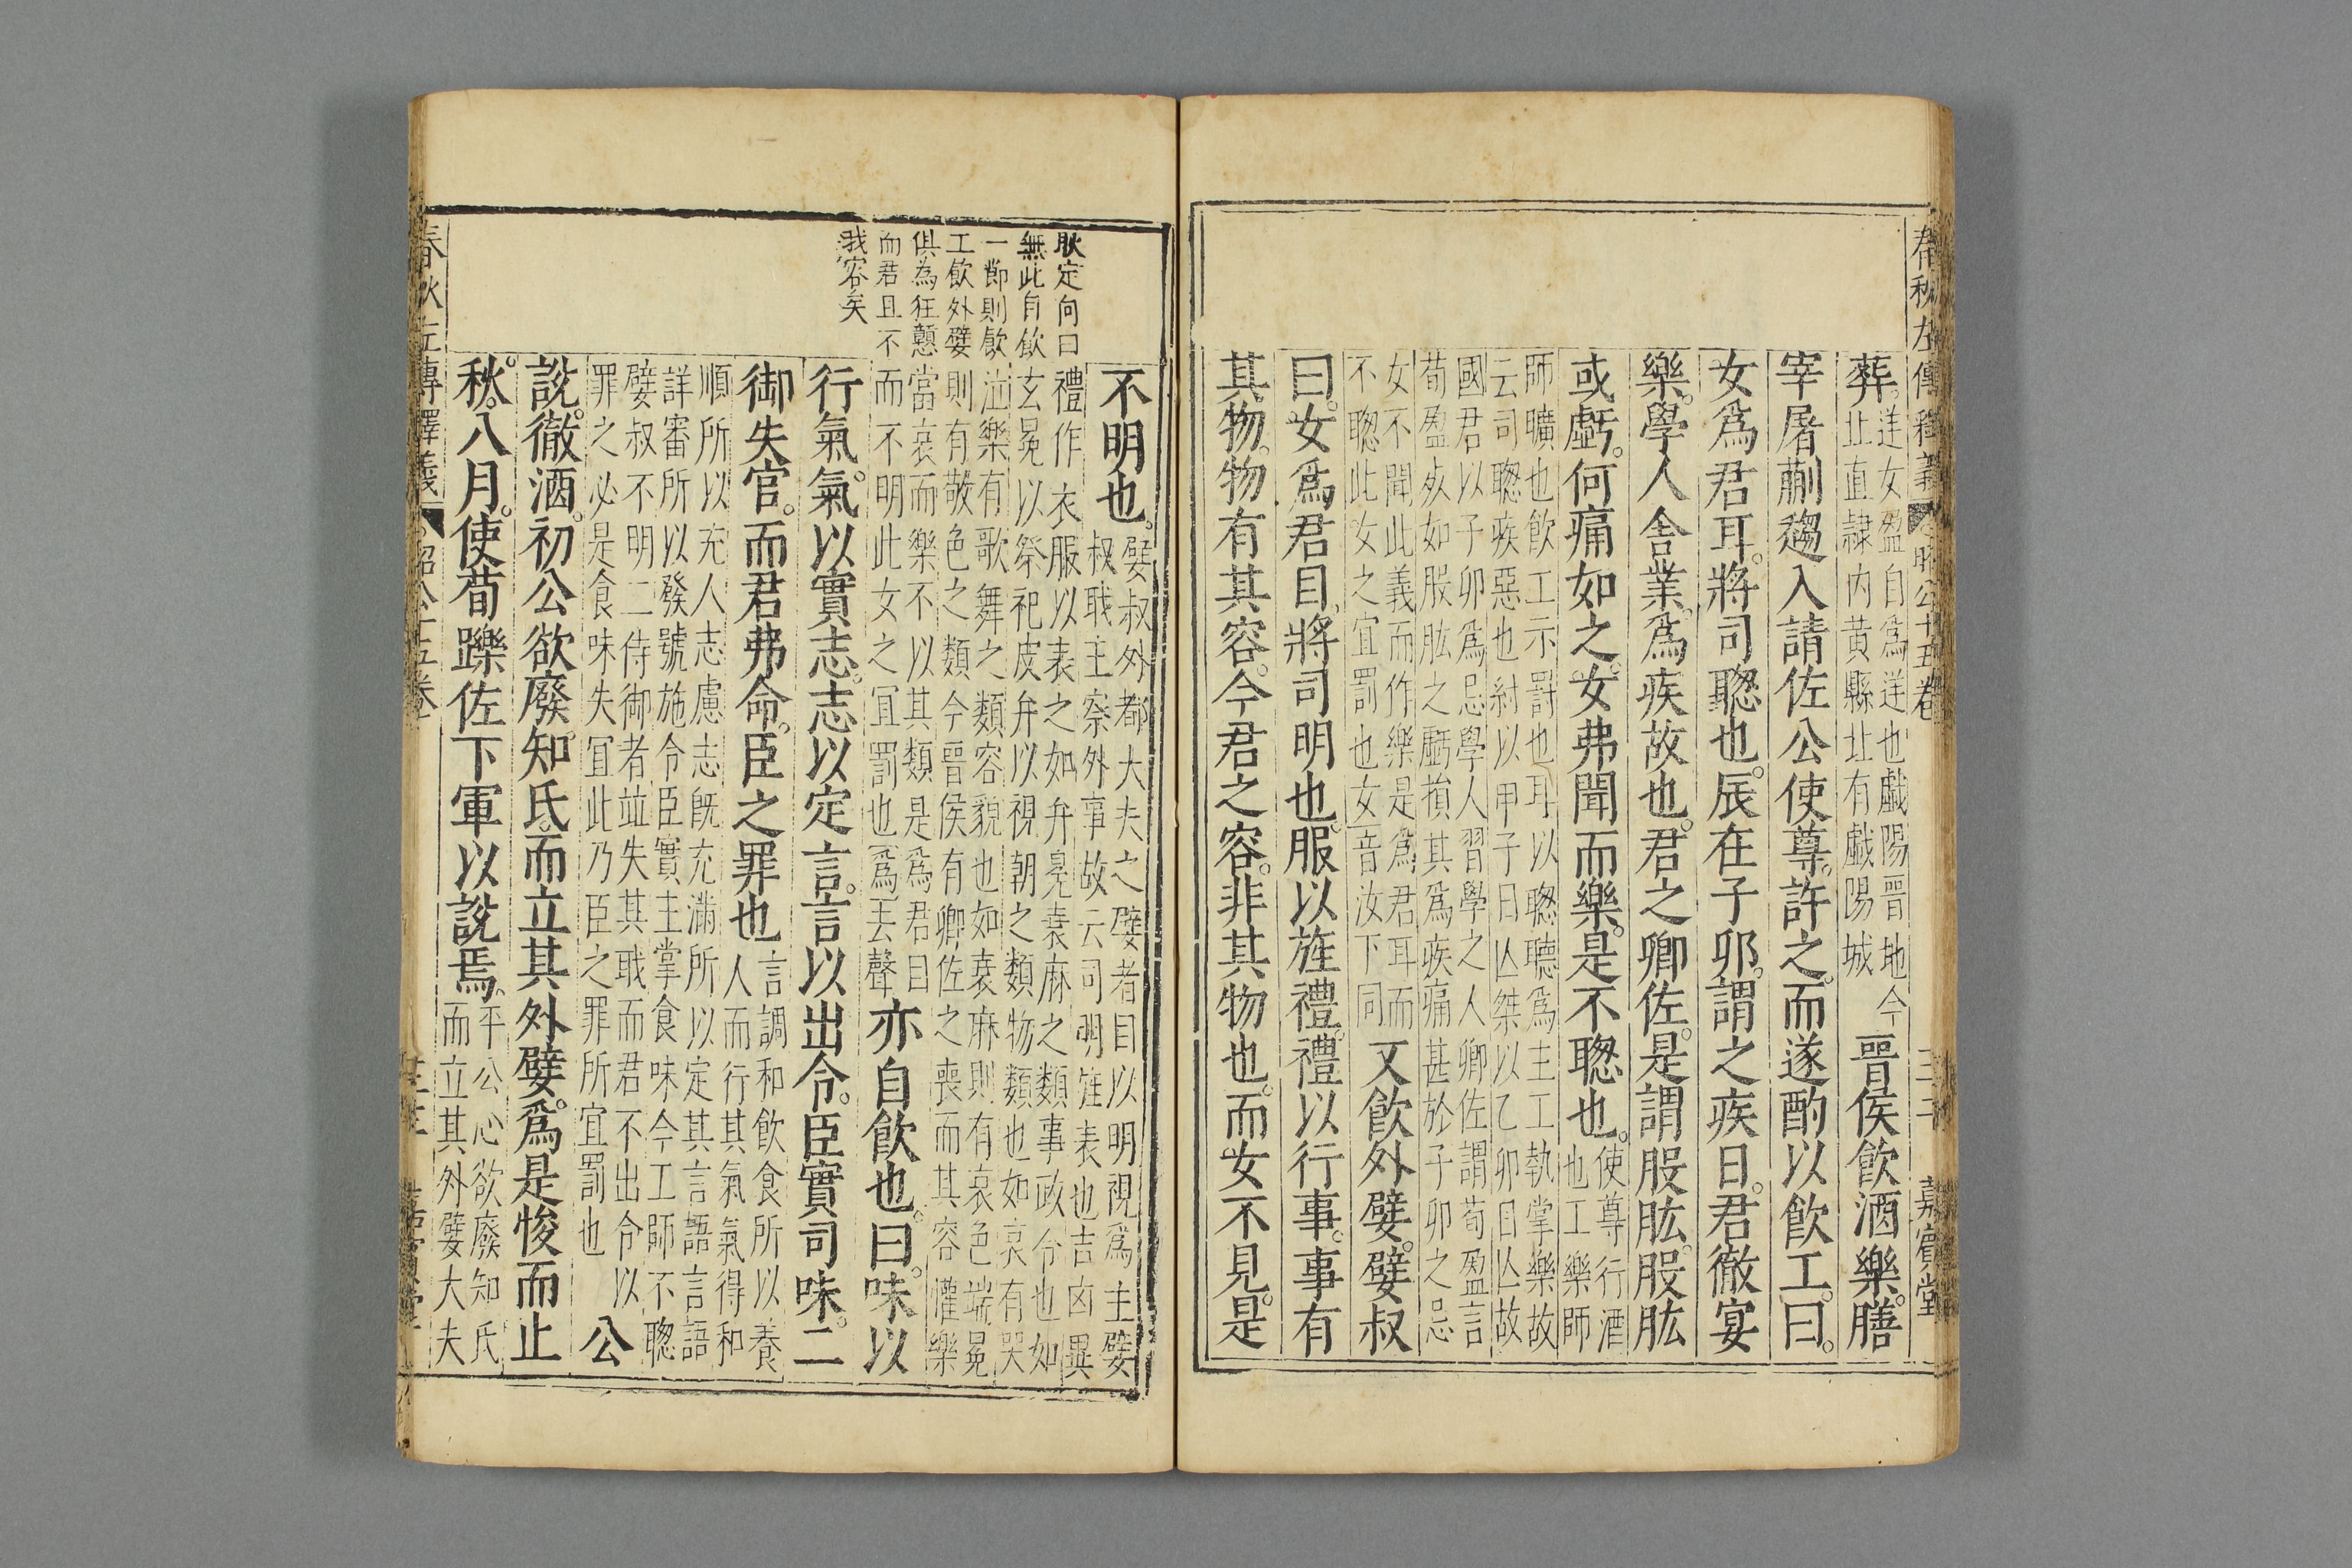 春秋左傳釋義 昭公十五卷 嘉賓堂
葬。
逆女盈自爲逆也戲陽晉地今
北直隷内黄縣北有戲陽城
晉侯飲酒樂。膳
宰屠蒯趨入請佐公使尊。許之。而遂酌以飲工。曰。
女爲君耳。將司聰也。辰在子卯。謂之疾日。君徹宴
樂。學人舍業。爲疾故也。君之卿佐。是謂股肱。股肱
或虧。何痛如之。女弗聞而樂。是不聰也。
使尊行酒
也工樂師
師曠也飲工示罰也耳以聰聽爲主工執掌樂故
云司聰疾惡也紂以甲子日亡桀以乙卯日亡故
國君以子卯爲忌學人習學之人卿佐謂荀盈言
荀盈死如股肱之虧損其爲疾痛甚於子卯之忌
女不聞此義而作樂是爲君耳而
不聰此女之宜罰也女音汝下同
又飲外嬖。嬖叔
曰。女爲君目。將司明也。服以旌禮。禮以行事。事有
其物。物有其容。今君之容。非其物也。而女不見。是
耿定向曰
無此自飲
一節則飲
工飲外嬖
俱為狂戇
而君且不
我容矣
不明也。
嬖叔外都大夫之嬖者目以明視爲主嬖
叔職主察外事故云司明旌表也吉凶異
禮作衣服以表之如弁冕衰麻之類事政令也如
玄冕以祭祀皮弁以視朝之類物類也如哀有哭
泣樂有歌舞之類容貌也如衰麻則有哀色端冕
則有敬色之類今晉侯有卿佐之喪而其容懽樂
當哀而樂不以其類是爲君目
而不明此女之冝罰也爲去聲
亦自飲也。曰。味以
行氣。氣以實志。志以定言。言以出令。臣實司味。二
御失官。而君弗命。臣之罪也
言調和飲食所以養
人而行其氣氣得和
順所以充人志慮志旣充滿所以定其言語言語
詳審所以發號施令臣實主掌食味今工師不聰
嬖叔不明二侍御者竝失其職而君不出令以
罪之必是食味失冝此乃臣之罪所宜罰也
公
說。徹酒。初。公欲廢。知氏。而立其外嬖。爲是悛而止
秋。八月。使荀躒佐下軍以說焉。
平公心欲廢知氏
而立其外嬖大夫
春秋左傳釋義 昭公十五卷